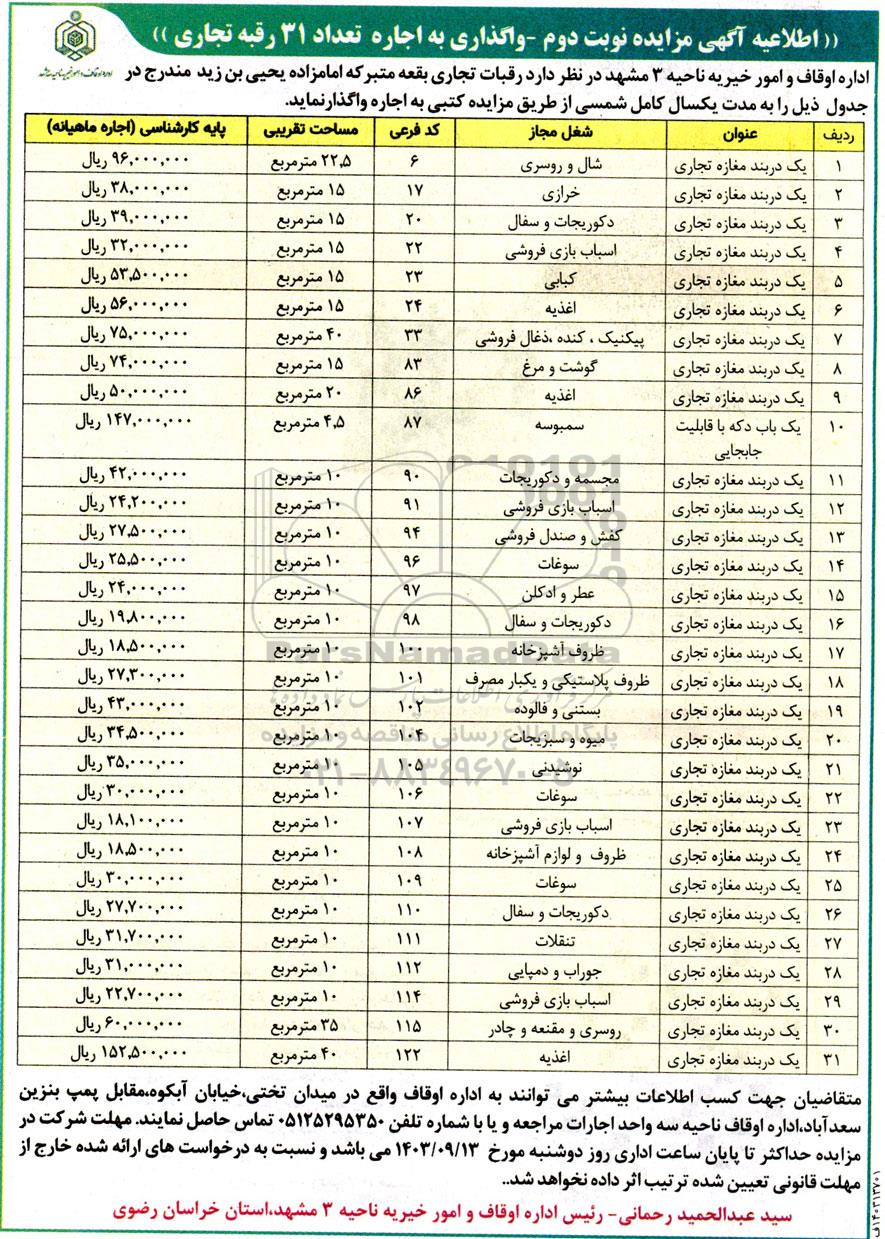 (( اطلاعیه آگهی مزایده نوبت دوم -واگذاری به اجاره تعداد ۳۱ رقبه تجاری ))
اداره اوقاف و امور خیریه ناحیه ۳ مشهد در نظر دارد رقبات تجاری بقعه متبرکه امامزاده یحیی بن زید مندرج در
جدول ذیل را به مدت یکسال کامل شمسی از طریق مزایده کتبی به اجاره واگذار نماید.
ردیف عنوان شغل مجاز کد فرعی مساحت تقریبی پایه کارشناسی (اجاره ماهیانه)
۱ یک دربند مغازه تجاری شال و روسری ۶ ۲۲,۵ مترمربع ۹۶,۰۰۰,۰۰۰ ریال
۲ یک دربند مغازه تجاری خرازی ۱۷ ۱۵ مترمربع ۳۸,۰۰۰,۰۰۰ ریال
۳ یک دربند مغازه تجاری دکوریجات و سفال ۲۰ ۱۵ مترمربع ۳۹,۰۰۰,۰۰۰ ریال
۴ یک دربند مغازه تجاری اسباب بازی فروشی ۲۲ ۱۵ مترمربع ۳۲,۰۰۰,۰۰۰ ریال
۵ یک دربند مغازه تجاری کبابی ۲۳ ۱۵ مترمربع ۵۳,۵۰۰,۰۰۰ ریال
۶ یک دربند مغازه تجاری اغذیه ۲۴ ۱۵ مترمربع ۵۶,۰۰۰,۰۰۰ ریال
۷ یک دربند مغازه تجاری پیکنیک ، کنده ،ذغال فروشی ۳۳ ۴۰ مترمربع ۷۵,۰۰۰,۰۰۰ ریال
۸ یک دربند مغازه تجاری گوشت و مرغ ۸۳ ۱۵ مترمربع ۷۴,۰۰۰,۰۰۰ ریال
۹ یک دربند مغازه تجاری اغذیه ۸۶ ۲۰ مترمربع ۵۰,۰۰۰,۰۰۰ ریال
۱۰ یک باب دکه با قابلیت سمبوسه ۸۷ ۴,۵ مترمربع ۱۴۷,۰۰۰,۰۰۰ ریال
جابجایی
۱۱ یک دربند مغازه تجاری مجسمه و دکوریجات ۹۰ ۱۰ مترمربع ۴۲,۰۰۰,۰۰۰ ریال
۱۲ یک دربند مغازه تجاری اسباب بازی فروشی ۹۱ ۱۰ مترمربع ۲۴,۲۰۰,۰۰۰ ریال
۱۳ یک دربند مغازه تجاری کفش و صندل فروشی ۹۴ ۱۰ مترمربع ۲۷,۵۰۰,۰۰۰ ریال
۱۴ یک دربند مغازه تجاری سوغات ۹۶ ۱۰ مترمربع ۲۵,۵۰۰,۰۰۰ ریال
۱۵ یک دربند مغازه تجاری عطر و ادکلن ۹۷ ۱۰ مترمربع ۲۴,۰۰۰,۰۰۰ ریال
۱۶ یک دربند مغازه تجاری دکوریجات و سفال ۹۸ ۱۰ مترمربع ۱۹,۸۰۰,۰۰۰ ریال
۱۷ یک دربند مغازه تجاری ظروف آشپزخانه ۱۰۰ ۱۰ مترمربع ۱۸,۵۰۰,۰۰۰ ریال
ParsNamadData
۱۸ یک دربند مغازه تجاری ظروف پلاستیکی و یکبار مصرف ۱۰۱ ۱۰ مترمربع ۲۷,۳۰۰,۰۰۰ ریال
۱۹ یک دربند مغازه تجاری بستنی و فالوده ۱۰۲ ۱۰ مترمربع ۴۳,۰۰۰,۰۰۰ ریال
۲۰ یک دربند مغازه تجاری میوه و سبزیجات ۱۰۴ ۱۰ مترمربع ۳۴,۵۰۰,۰۰۰ ریال
پایگاه اطلاع رسانی مناقصه و مزایده
۲۱ یک دربند مغازه تجاری نوشیدنی ۱۰۵ ۱۰ مترمربع ۳۵,۰۰۰,۰۰۰ ریال
۰۲۱-۸۸۳۴۹۶۷۰-۵
۲۲ یک دربند مغازه تجاری سوغات ۱۰۶ ۱۰ مترمربع ۳۰,۰۰۰,۰۰۰ ریال
۲۳ یک دربند مغازه تجاری اسباب بازی فروشی ۱۰۷ ۱۰ مترمربع ۱۸,۱۰۰,۰۰۰ ریال
۲۴ یک دربند مغازه تجاری ظروف و لوازم آشپزخانه ۱۰۸ ۱۰ مترمربع ۱۸,۵۰۰,۰۰۰ ریال
۲۵ یک دربند مغازه تجاری سوغات ۱۰۹ ۱۰ مترمربع ۳۰,۰۰۰,۰۰۰ ریال
۲۶ یک دربند مغازه تجاری دکوریجات و سفال ۱۱۰ ۱۰ مترمربع ۲۷,۷۰۰,۰۰۰ ریال
۲۷ یک دربند مغازه تجاری تنقلات ۱۱۱ ۱۰ مترمربع ۳۱,۷۰۰,۰۰۰ ریال
۲۸ یک دربند مغازه تجاری جوراب و دمپایی ۱۱۲ ۱۰ مترمربع ۳۱,۰۰۰,۰۰۰ ریال
۲۹ یک دربند مغازه تجاری اسباب بازی فروشی ۱۱۴ ۱۰ مترمربع ۲۲,۷۰۰,۰۰۰ ریال
۳۰ یک دربند مغازه تجاری روسری و مقنعه و چادر ۱۱۵ ۳۵ مترمربع ۶۰,۰۰۰,۰۰۰ ریال
۳۱ یک دربند مغازه تجاری اغذیه ۱۲۲ ۴۰ مترمربع ۱۵۲,۵۰۰,۰۰۰ ریال
متقاضیان جهت کسب اطلاعات بیشتر می توانند به اداره اوقاف واقع در میدان تختی،خیابان آبکوه،مقابل پمپ بنزین
سعدآباد،اداره اوقاف ناحیه سه واحد اجارات مراجعه و یا با شماره تلفن ۰۵۱۲۵۲۹۵۳۵۰ تماس حاصل نمایند. مهلت شرکت در
مزایده حداکثر تا پایان ساعت اداری روز دوشنبه مورخ ۱۴۰۳/۰۹/۱۳ می باشد و نسبت به درخواست های ارائه شده خارج از
مهلت قانونی تعیین شده ترتیب اثر داده نخواهد شد..
سید عبدالحمید رحمانی- رئیس اداره اوقاف و امور خیریه ناحیه ۳ مشهد،استان خراسان رضوی
۱۴۰۳۱۳۷۰۱ف